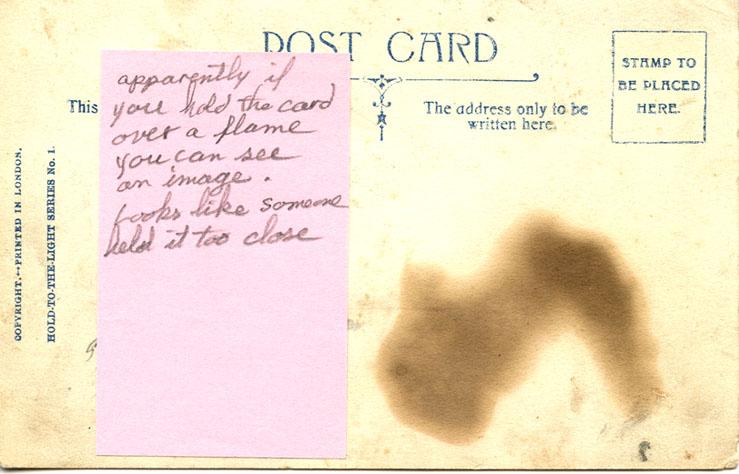 POST CARD
STAMP TO
BE PLACED
HERE.
This
The address only to be
written here.
apparently if
you hold the card
over a flame
you can see
an image.
Looks like someone
held it too close
COPYRIGHT.--PRINTED IN LONDON.
HOLD-TO-THE-LIGHT SERIES No. 1.